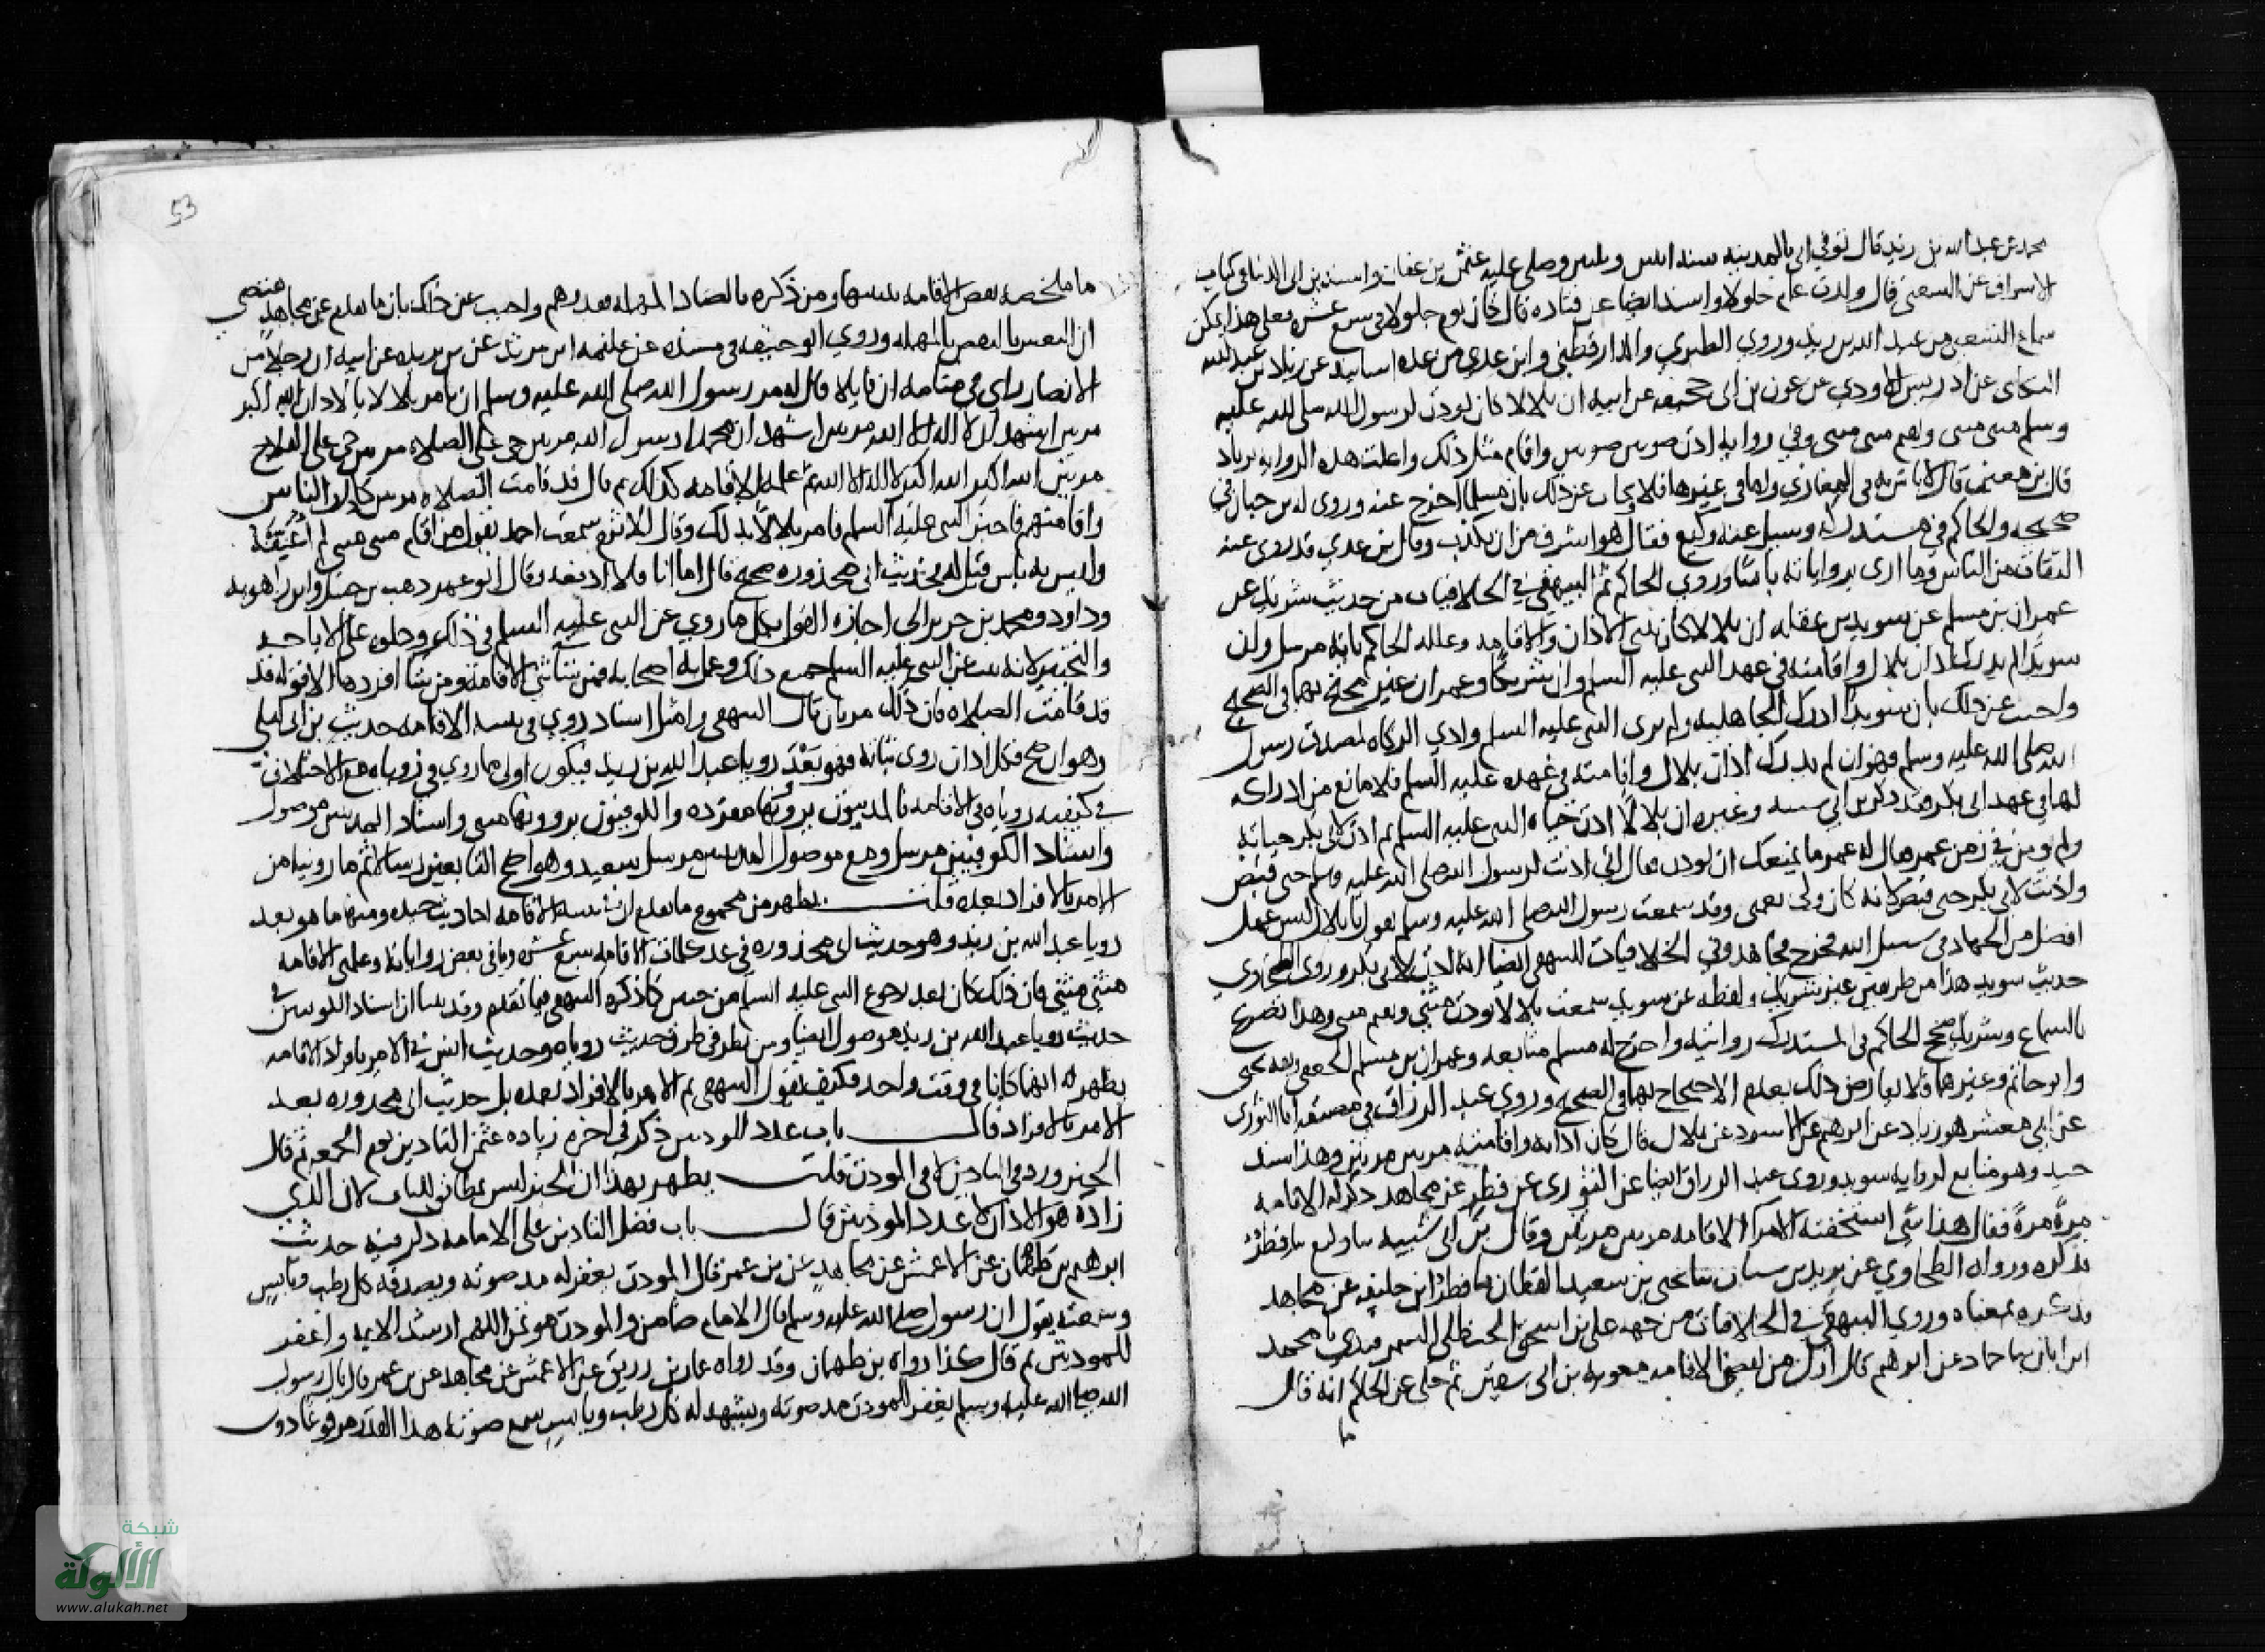 محمد بن عبد الله بن زيد قال توفي ابي بالمدينه سنه اثنين وثلثين وصلى عليه عثمن بن عفان واسند بن ابي الدنيا في كتاب
الاشراف عن الشعبي قال ولدت عام جلولا واسند ايضا عن قتاده قال كان يوم جلولا في سبع عشره فعلى هذا يمكن
سماع الشعبي من عبد الله بن زيد وروي الطبري والدارقطني وابن عدي من عده اسانيد عن زياد بن عبد الله
البكاى عن ادريس الاودي عن عون بن ابي جحيفه عن ابيه ان بلالا كان يوذن لرسول الله صلى الله عليه
وسلم مثنى مثنى ويقيم مثنى مثنى وفي روايه اذن صوتين صوتين واقام مثل ذلك واعلت هذه الروايه بزياد
قال بن معين قال لا باس به في المغازي واما في غيرها فلا يجاب عن ذلك بان مسلما اخرج عنه وروى له بن حبان في
صحيحه والحاكم في مستدركه وسيل عنه وكيع فقال هو اشرف من ان يكذب وقال بن عدي قد روى عنه
الثقات من الناس وما ارى برواياته باسا وروي الحاكم ثم البيهقي في الخلافيات من حديث شريك عن
عمران بن مسلم عن سويد بن غفله ان بلالا كان يثني الاذان والاقامه وعلله الحاكم بانه مرسل وان
سويدا لم يدرك اذان بلال واقامته في عهد النبي عليه السلم وان شريكا وعمران غير محتج بهما في الصحيح
واجيب عن ذلك بان سويدا ادرك الجاهليه ولم يرى النبي عليه السلم وادي الزكاه لمصدق رسول
الله صلى الله عليه وسلم فهو ان لم يدرك اذان بلال واقامته في عهده عليه السلم فلا مانع من ادراكه
لها في عهد ابي بكر فقد ذكر بن ابي شيبه وغيره ان بلالا اذن حياه النبي عليه السلم ثم اذن لابي بكر حياته
ولم يوذن في زمن عمر فقال له عمر ما يمنعك ان توذن فقال اني اذنت لرسول الله صلى الله عليه وسلم حتى قبض
واذنت لابي بكر حتى قبض لانه كان ولي نعمتي وقد سمعت رسول الله صلى الله عليه وسلم يقول يا بلال ليس عمل
افضل من الجهاد في سبيل الله فخرج مجاهد وفي الخلافيات للبيهقي ايضا انه اذن لابي بكر وروى الطحاوي
حديث سويد هذا من طريقين عن شريك ولفظه عن سويد سمعت بلالا يوذن مثنى ويقيم مثنى وهذا تصريح
بالسماع وشريك صحح الحاكم في المستدرك روايته واخرج له مسلم متابعه وعمران بن مسلم الجعفي وثقه يحيى
وابو حاتم وغيرهما فلا يعارض ذلك بعدم الاحتجاج بهما في الصحيح وروي عبد الرزاق في مصنفه انا الثوري
عن ابي معشر هو زياد عن ابرهيم عن الاسود عن بلال قال كان اذانه واقامته مرتين مرتين وهذا سند
جيد وهو متابع لروايه سويد وروى عبد الرزاق ايضا عن الثوري عن فطر عن مجاهد ذكر له الاقامه
مرة مرة فقال هذا شي استخفته الامرا الاقامه مرتين مرتين وقال بن ابي شيبه نا وكيع نا فطر
فذكره ورواه الطحاوي عن يزيد بن سنان نا يحيى بن سعيد القطان نا فطر ابن خليفه عن مجاهد
فذكره بمعناه وروي البيهقي في الخلافيات من جهه علي بن اسحق الحنظلي السمرقندي نا محمد
ابن ابان نا حماد عن ابرهيم قال اول من نقص الاقامه معويه بن ابي سفين ثم حكى عن الحاكم انه قال
ما
53
ما ملخصه نقص الاقامه تثنيتها ومن ذكره بالضاد المعجمه فقد وهم واجيب عن ذلك بان ما تقدم عن مجاهد مقتضى
ان النقص بالنقص بالمهمله وروي ابو حنيفه في مسنده عن علقمه ابن مرثد عن بن بريده عن ابيه ان رجلا من
الانصار راى في منامه ان قايلا قال له مر رسول الله صلى الله عليه وسلم ان يامر بلالا بالاذان الله اكبر
مرتين اشهد ان لا اله الا الله مرتين اشهد ان محمدا رسول الله مرتين حي على الصلاه مرتين حي على الفلاح
مرتين الله اكبر الله اكبر لا اله الا الله ثم علمه الاقامه كذلك ثم قال قد قامت الصلاه مرتين كاذان الناس
واقامتهم فاخبر النبي عليه السلم فامر بلالا بذلك وقال الاثرم سمعت احمد يقول من اقام مثنى مثنى لم اعنفه
وليس به باس قيل له حديث ابي محذوره صحيح قال اما انا فلا ادفعه وقال ابو عمر ذهب بن حنبل وابن راهويه
وداود ومحمد بن جرير الى اجازه القول بكل ما روي عن النبي عليه السلم في ذلك وحملوه على الاباحه
والتخيير لانه ثبت عن النبي عليه السلم جميع ذلك وعمل به اصحابه فمن شا ثنى الاقامه ومن شا افردها الا قوله قد
قد قامت الصلاه فان ذلك مرتان قال البيهقي وامثل اسناد روي في تثنيه الاقامه حديث بن ابي ليلى
وهو ان صح فكل اذان روي ثنائه فهو بعد رويا عبد الله بن زيد فيكون اولى مما روي في روياه مع الاختلاف
في كيفيه روياه في الاقامه فالمدنيون يروونها مفرده والكوفيون يروونها مثنى واسناد المدنيين موصول
واسناد الكوفيين مرسل ومع موصول المدنيين مرسل سعيد وهو اصح التابعين ارسالا ثم ما روينا من
الامر بالافراد بعده قلت يظهر من مجموع ما تقدم ان لتثنيه الاقامه احاديث جيده ومنها ما هو بعد
رويا عبد الله بن زيد وهو حديث ابي محذوره في عد كلمات الاقامه سبع عشره وفي بعض رواياته وعلمني الاقامه
مثنى مثنى فان ذلك كان بعد رجوع النبي عليه السلم من حنين كما ذكره البيهقي فيما تقدم وقد بينا ان اسناد الكوفيين في
حديث رويا عبد الله بن زيد موصول ايضا ومن نظر في طرق حديث روياه وحديث انس في الامر بافراد الاقامه
يظهر له انهما كانا في وقت واحد فكيف يقول البيهقي ثم الامر بالافراد بعده بل حديث ابي محذوره بعد
الامر بالافراد قال باب عدد الموذنين ذكر في اخره زياده عثمن التاذين يوم الجمعه ثم قال
الخبر ورد في التاذين لا في الموذن قلت يظهر بهذا ان الخبر ليس بمطابق للباب لان الذي
زاده هو الاذان لا عدد الموذنين قال باب فضل التاذين على الامامه ذكر فيه حديث
ابرهيم بن طهمان عن الاعمش عن مجاهد عن بن عمر قال الموذن يغفر له مد صوته ويصدقه كل رطب ويابس
وسمعته يقول ان رسول صلى الله عليه وسلم قال الامام ضامن والموذن موتمن اللهم ارشد الايمه واغفر
للموذنين ثم قال كذا رواه بن طهمان وقد رواه عمار بن رزيق عن الاعمش عن مجاهد عن بن عمر قال قال رسول
الله صلى الله عليه وسلم يغفر للموذن مد صوته ويشهد له كل رطب ويابس سمع صوته هذا القدر مرفوعا دون
شبكة
الألوكة
www.alukah.net